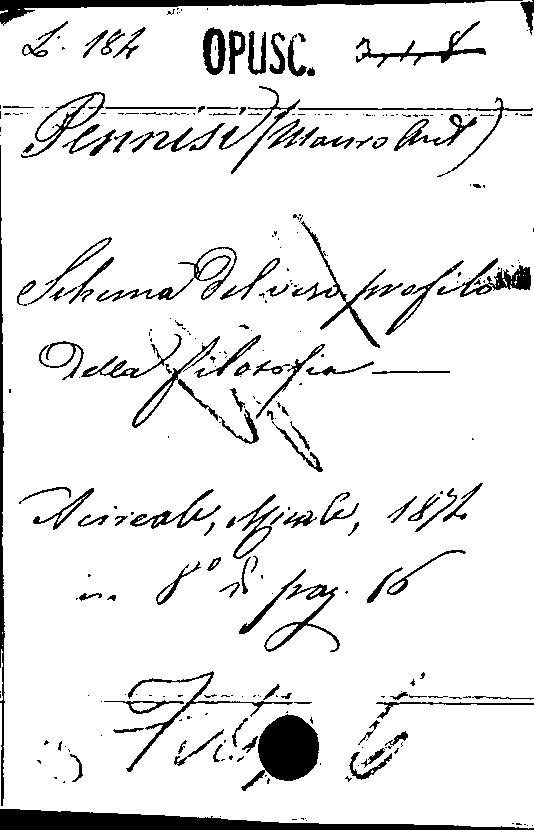 L. 184 OPUSC. 3,1,8
Pennisi (Mauro Ant)
Schema del vero profilo
della filosofia —
Acireale, Micale, 1874
in 8° di pag. 16
6